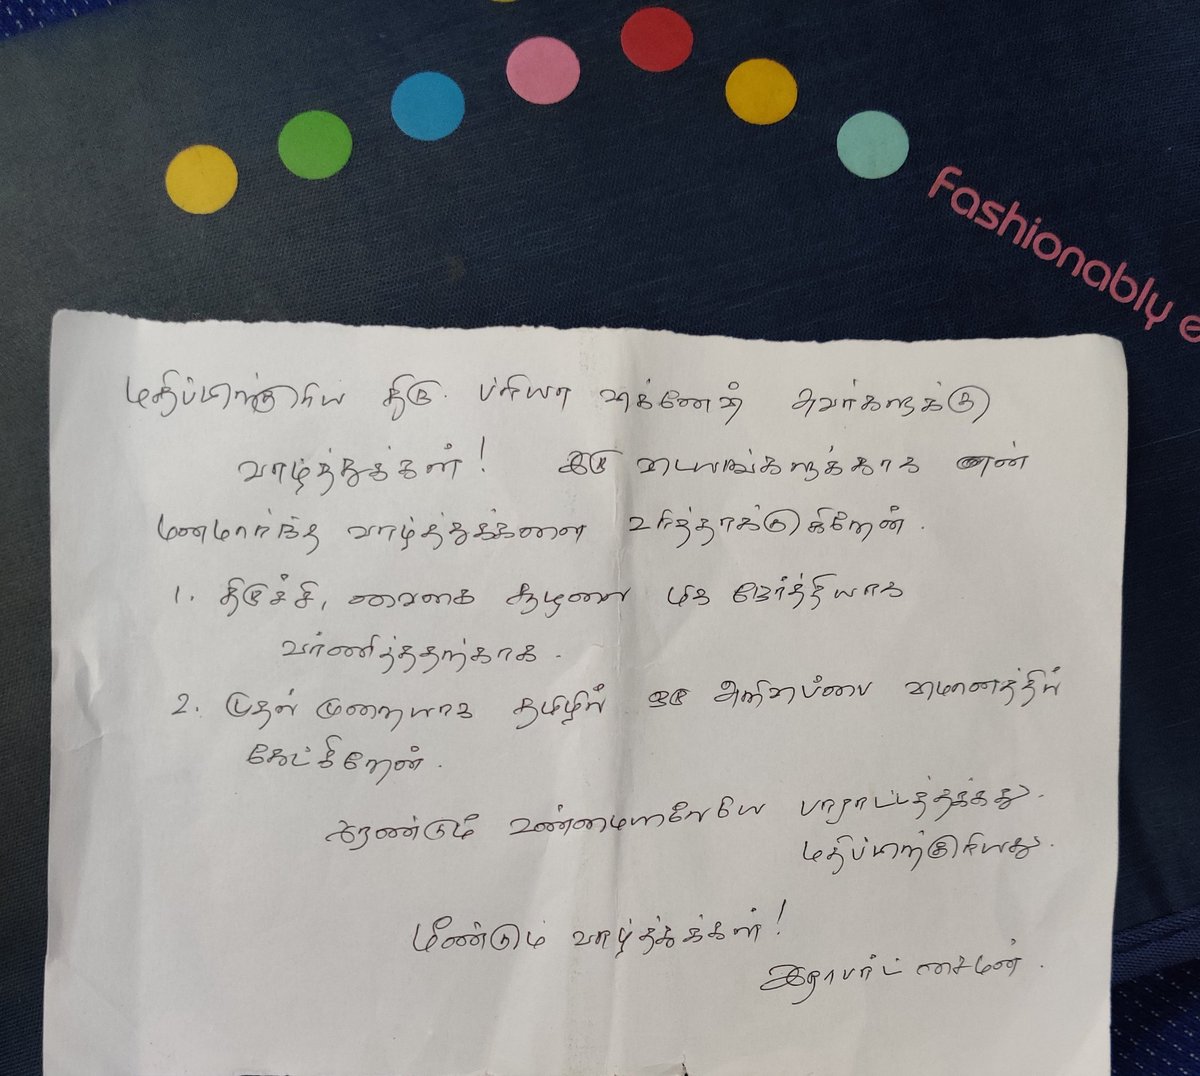 Fashionably e
மதிப்பிற்குரிய திரு. ப்ரியா விக்னேஷ் அவர்களுக்கு
வாழ்த்துக்கள்! இரு விடயங்களுக்காக என்
மனமார்ந்த வாழ்த்துக்களை உரித்தாக்குகிறேன்.
1. திருச்சி, வைகை சூழலை மிக நேர்த்தியாக
வர்ணித்ததற்காக.
2. முதல் முறையாக தமிழில் ஒரு அறிவிப்பை விமானத்தில்
கேட்கிறேன்.
இரண்டும் உண்மையிலேயே பாராட்டத்தக்கது.
மதிப்பிற்குரியது.
மீண்டும் வாழ்த்துக்கள்!
இராபர்ட் சைமன்.